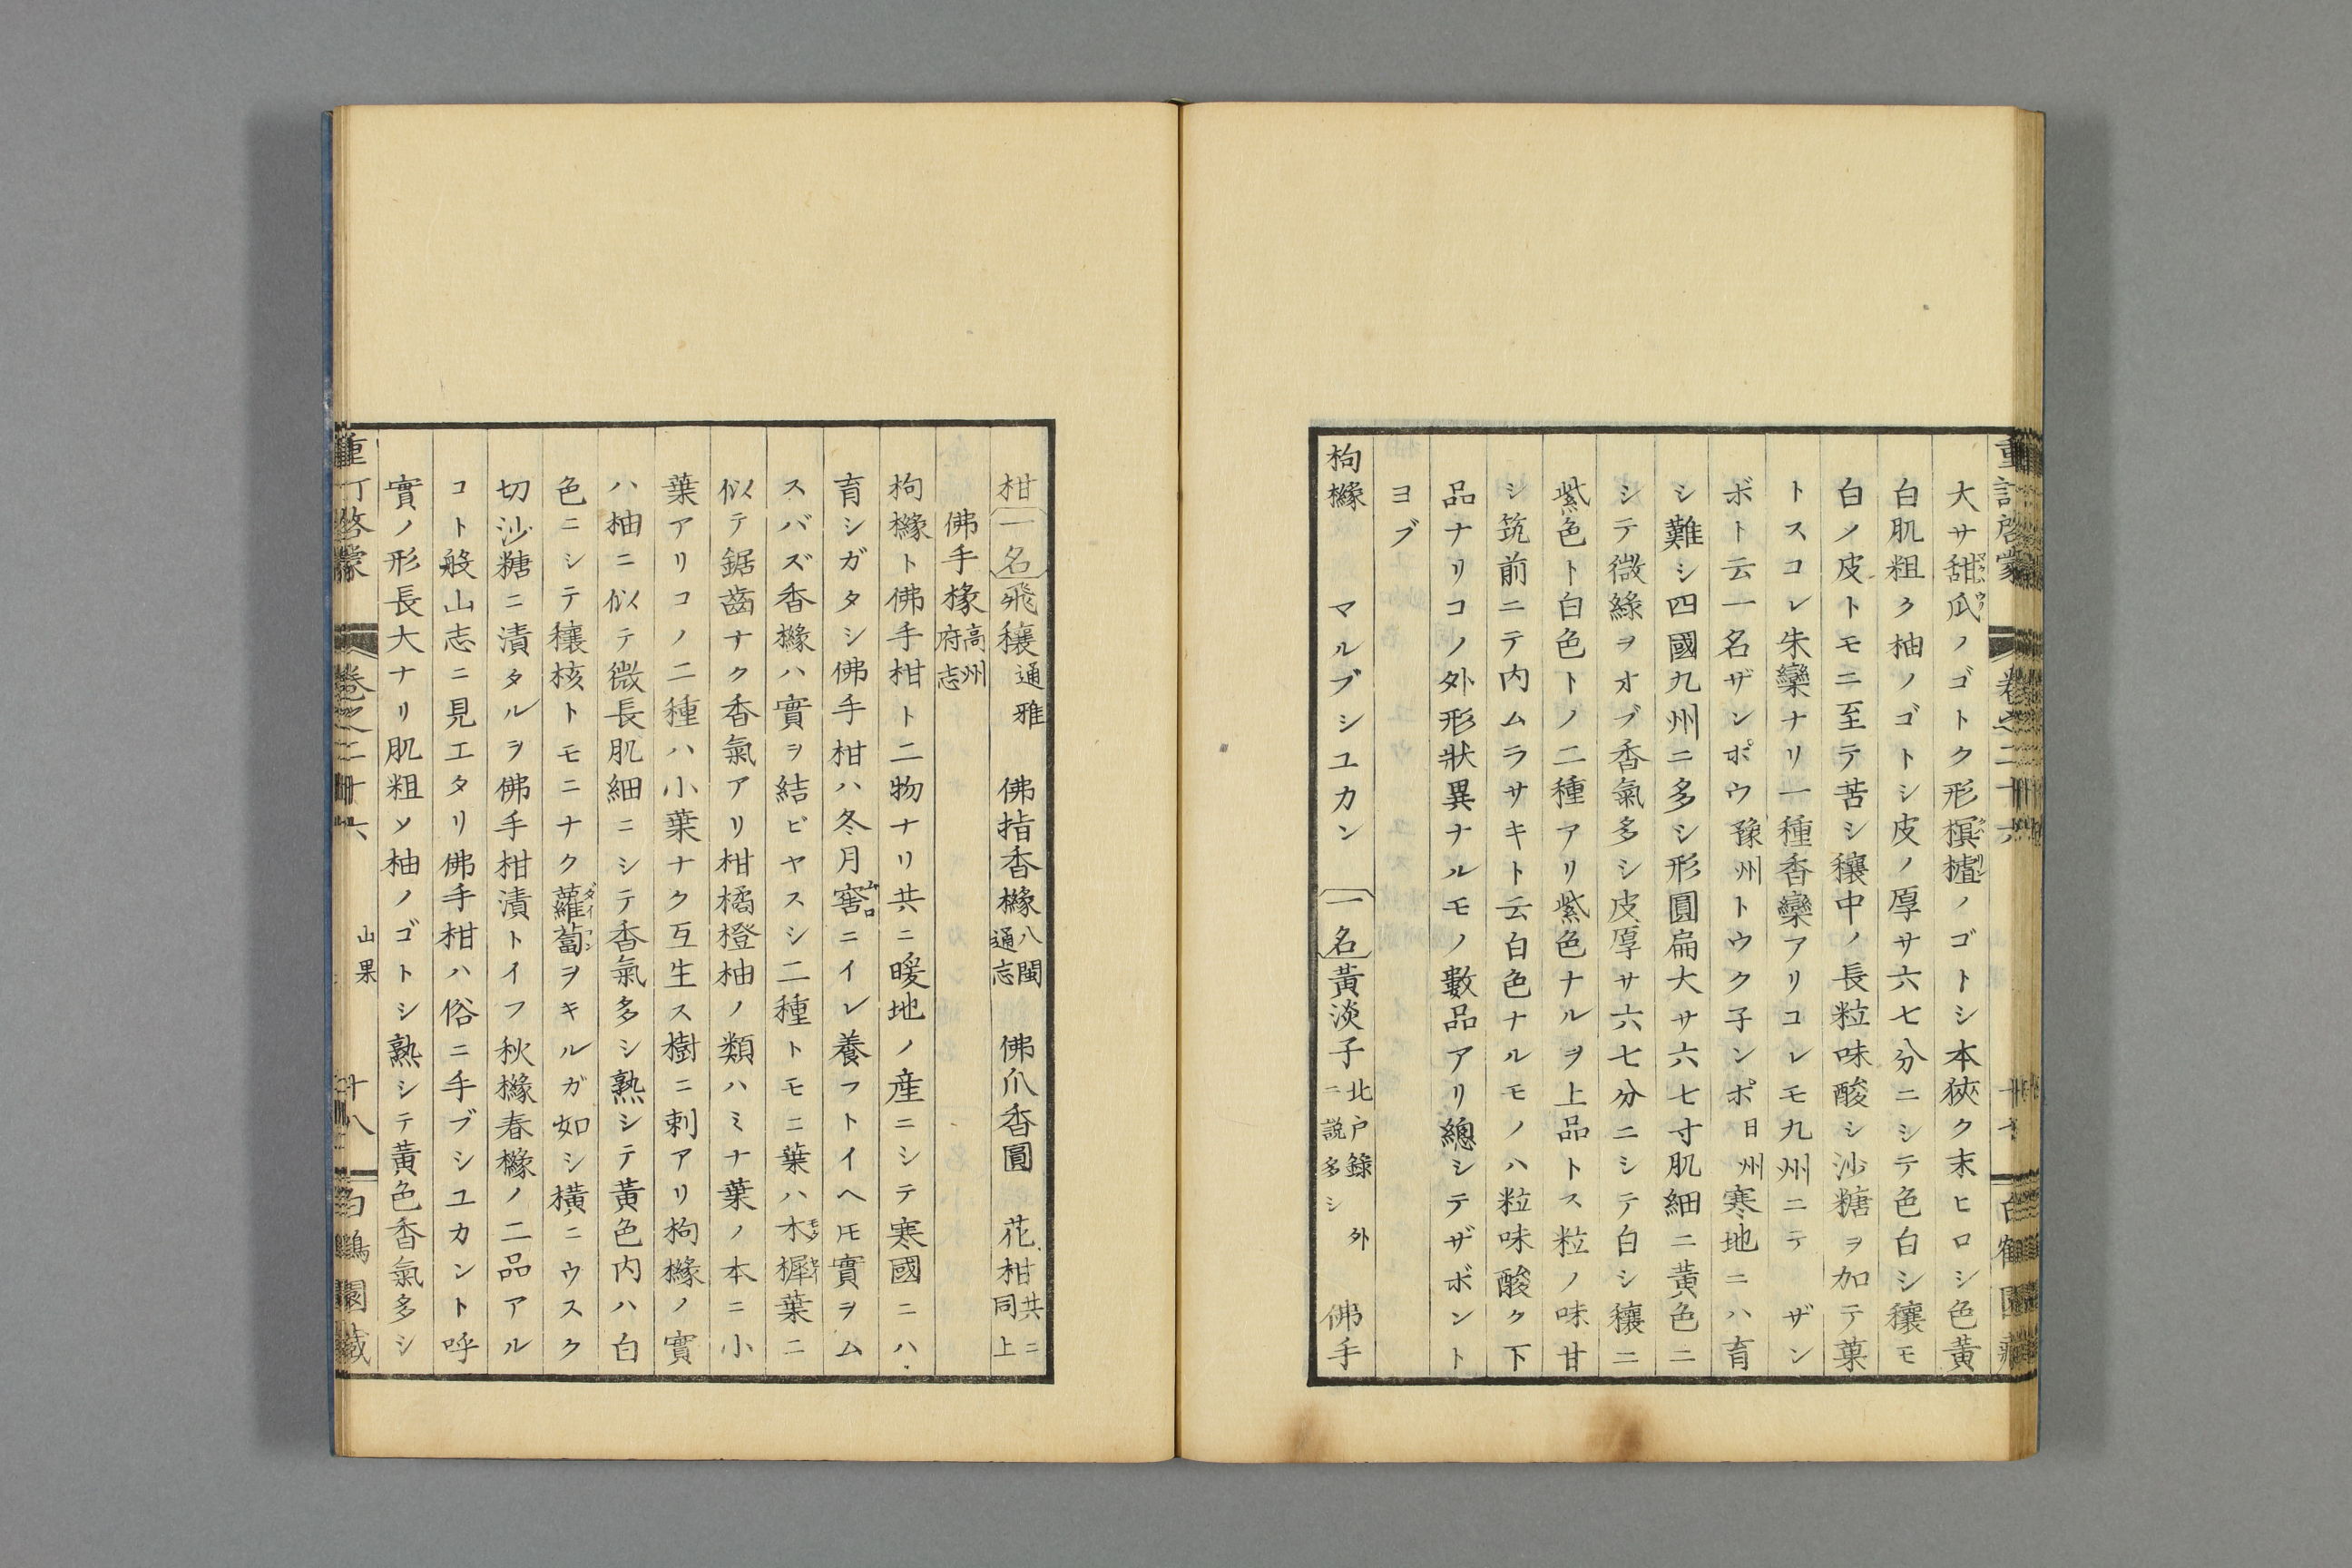 重訂啓蒙 卷之二十六 十七 白鶴園藏
大サ甜瓜ノゴトク形榠樝ノゴトシ本狹ク末ヒロシ色黃
白肌粗ク柚ノゴトシ皮ノ厚サ六七分ニシテ色白シ穰モ
白ノ皮トモニ至テ苦シ穰中ノ長粒味酸シ沙糖ヲ加テ菓
トスコレ朱欒ナリ一種香欒アリコレモ九州ニテ ザン
ボト云一名ザンポウ豫州トウクネンポ日州寒地ニハ育
シ難シ四國九州ニ多シ形圓扁大サ六七寸肌細ニ黃色ニ
シテ微綠ヲオブ香氣多シ皮厚サ六七分ニシテ白シ穰ニ
紫色ト白色トノ二種アリ紫色ナルヲ上品トス粒ノ味甘
シ筑前ニテ内ムラサキト云白色ナルモノハ粒味酸ク下
品ナリコノ外形狀異ナルモノ數品アリ總シテザボント
ヨブ
枸櫞 マルブシユカン 一名黃淡子北戸錄外ニ說多シ 佛手
柑一名飛穰通雅 佛指香櫞八閩通志 佛爪香圓 花柑共ニ同上
佛手櫞高州府志
枸櫞ト佛手柑ト二物ナリ共ニ暖地ノ産ニシテ寒國ニハ
育シガタシ佛手柑ハ冬月窖ムロニイレ養フトイヘ𪜈實ヲム
スバズ香櫞ハ實ヲ結ビヤスシ二種トモニ葉ハ木犀葉ニ
似テ鋸齒ナク香氣アリ柑橘橙柚ノ類ハミナ葉ノ本ニ小
葉アリコノ二種ハ小葉ナク互生ス樹ニ刺アリ枸櫞ノ實
ハ柚ニ似テ微長肌細ニシテ香氣多シ熟シテ黃色内ハ白
色ニシテ穰核トモニナク蘿蔔ダイコンヲキルガ如シ横ニウスク
切沙糖ニ漬タルヲ佛手柑漬トイフ秋櫞春櫞ノ二品アル
コト般山志ニ見エタリ佛手柑ハ俗ニ手ブシユカント呼
實ノ形長大ナリ肌粗ソ柚ノゴトシ熟シテ黃色香氣多シ
重訂啓蒙 卷之二十六 山果 十八 白鶴園藏